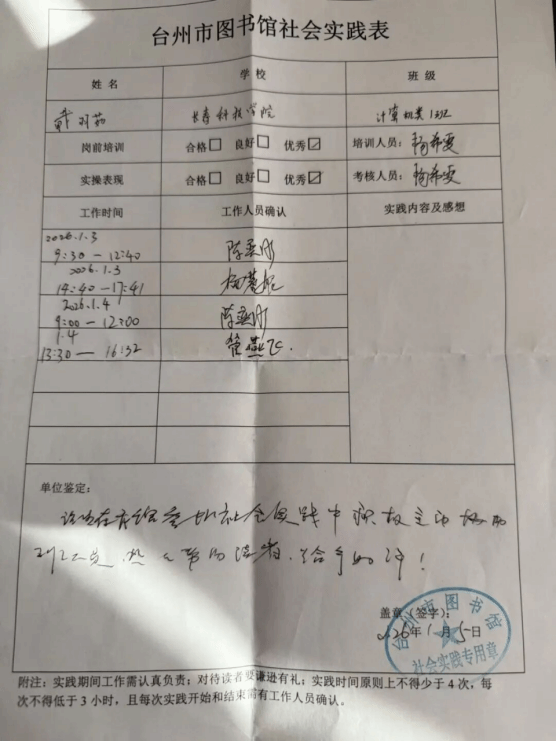 台州市图书馆社会实践表
姓名 学校 班级
长春科技学院 计算机类
岗前培训 合格□ 良好□ 优秀☑ 培训人员：杨希雯
实操表现 合格□ 良好□ 优秀☑ 考核人员：杨希雯
工作时间 工作人员确认 实践内容及感想
2026.1.3
9:30—12:40
2026.1.3
14:40—17:41
2026.1.4
9:00—12:00
1.4
13:30—16:32 管燕飞.
单位鉴定：
该生在我馆参加社会实践中积极主动协助
盖章（签字）：
2026年1月5日
台州市图书馆
社会实践专用章
附注：实践期间工作需认真负责；对待读者要谦逊有礼；实践时间原则上不得少于4次，每
次不得低于3小时，且每次实践开始和结束需有工作人员确认。